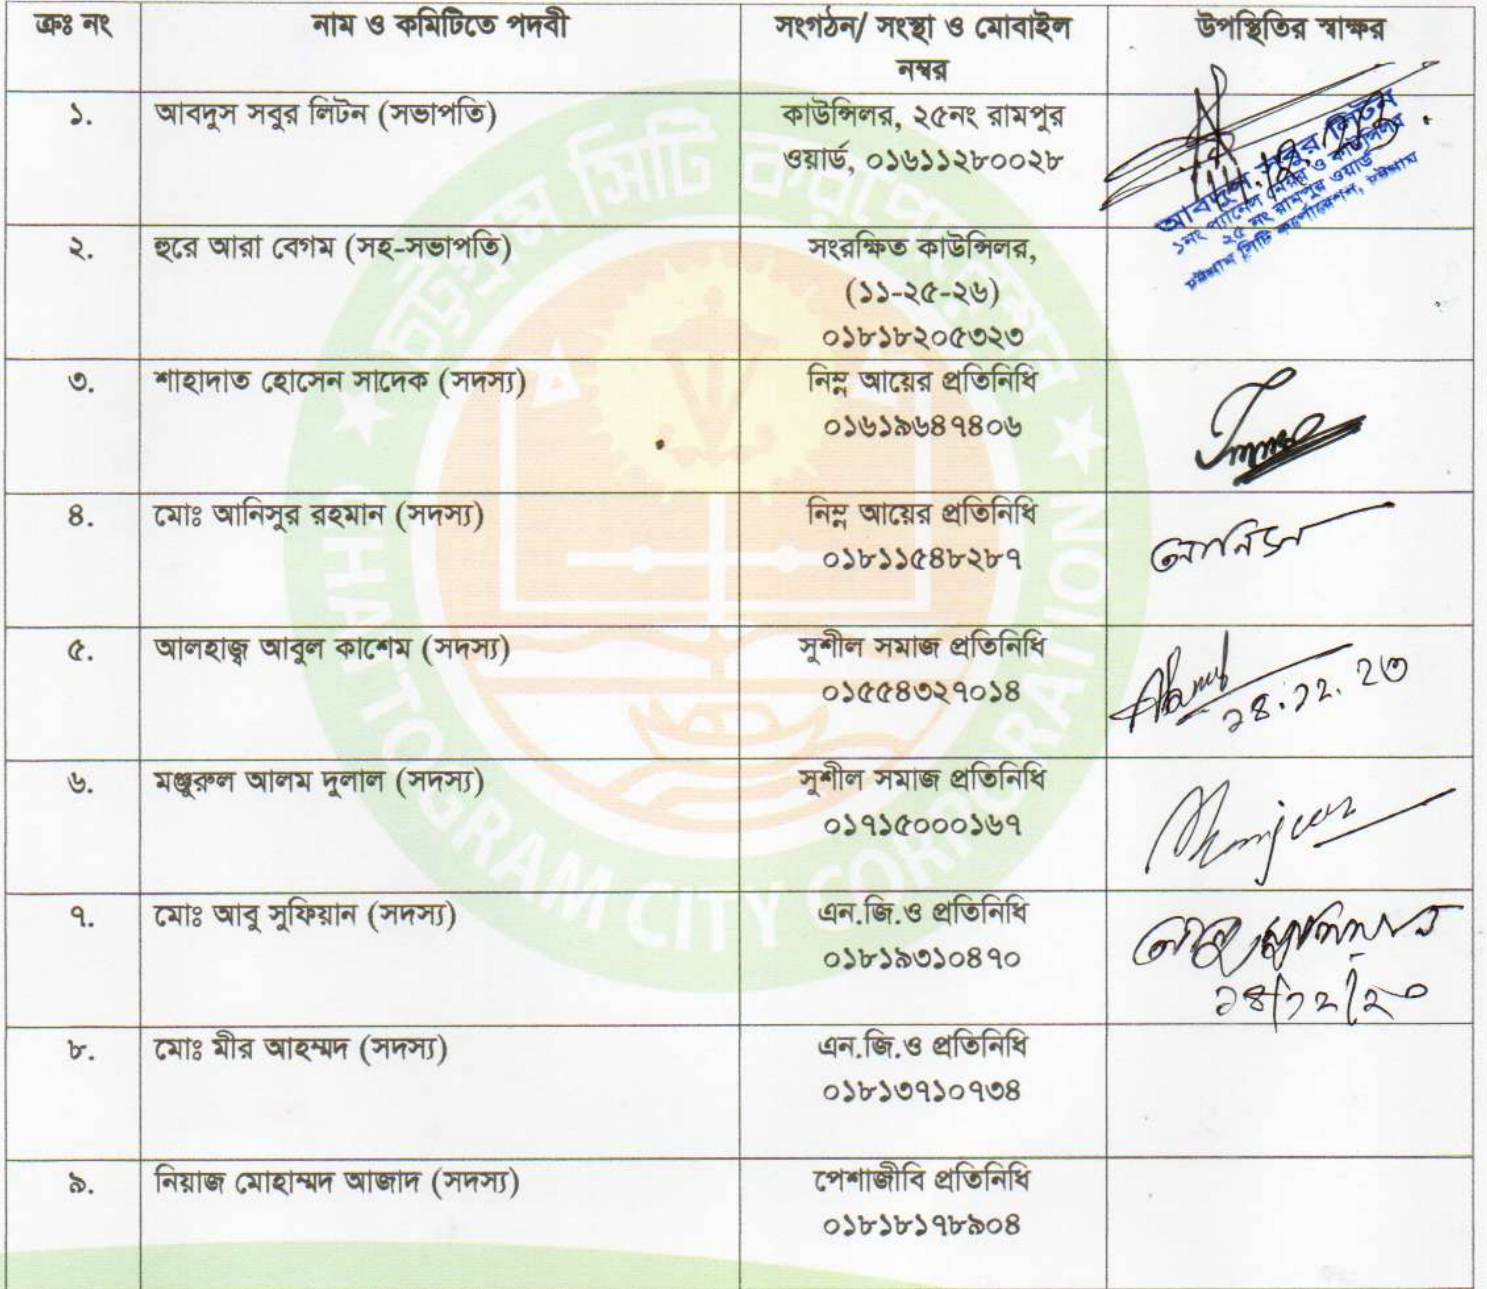 ক্রঃ নং নাম ও কমিটিতে পদবী সংগঠন/ সংস্থা ও মোবাইল নম্বর উপস্থিতির স্বাক্ষর
১. আবদুস সবুর লিটন (সভাপতি) কাউন্সিলর, ২৫নং রামপুর
ওয়ার্ড, ০১৬১১২৮০০২৮
আবদুস সবুর লিটন
১নং প্যানেল মেয়র ও কাউন্সিলর
২৫ নং রামপুর ওয়ার্ড
চট্টগ্রাম সিটি কর্পোরেশন, চট্টগ্রাম
২. হুরে আরা বেগম (সহ-সভাপতি) সংরক্ষিত কাউন্সিলর,
(১১-২৫-২৬)
০১৮১৮২০৫৩২৩
৩. শাহাদাত হোসেন সাদেক (সদস্য) নিম্ন আয়ের প্রতিনিধি
০১৬১৯৬৪৭৪০৬
৪. মোঃ আনিসুর রহমান (সদস্য) নিম্ন আয়ের প্রতিনিধি
০১৮১১৫৪৮২৮৭
আনিস
৫. আলহাজ্ব আবুল কাশেম (সদস্য) সুশীল সমাজ প্রতিনিধি
০১৫৫৪৩২৭০১৪
১৪.১২.২৩
৬. মঞ্জুরুল আলম দুলাল (সদস্য) সুশীল সমাজ প্রতিনিধি
০১৭১৫০০০১৬৭
৭. মোঃ আবু সুফিয়ান (সদস্য) এন.জি.ও প্রতিনিধি
০১৮১৯৩১০৪৭০
আবু সুফিয়ান
১৪/১২/২০
৮. মোঃ মীর আহম্মদ (সদস্য) এন.জি.ও প্রতিনিধি
০১৮১৩৭১০৭৩৪
৯. নিয়াজ মোহাম্মদ আজাদ (সদস্য) পেশাজীবি প্রতিনিধি
০১৮১৮১৭৮৯০৪
চট্টগ্রাম সিটি কর্পোরেশন
CHATTOGRAM CITY CORPORATION